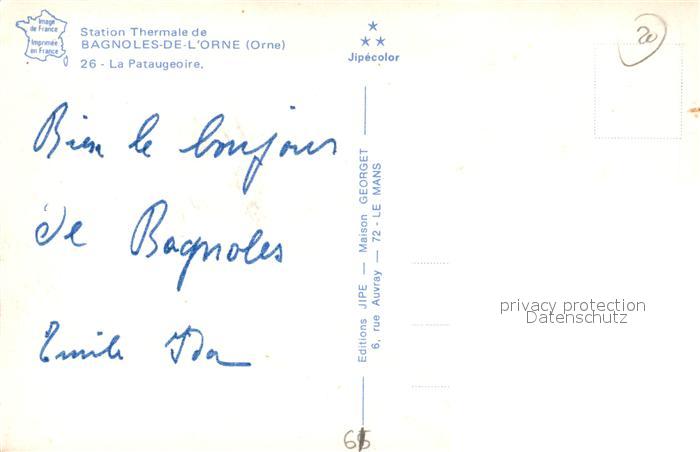 Image
de France
Imprimée
en France
Station Thermale de
BAGNOLES-DE-L'ORNE (Orne)
26 - La Pataugeoire.
Jipécolor
20
Bien le bonjour
de Bagnoles
Emile Ida
Editions JIPE — Maison GEORGET
6, rue Auvray — 72 - LE MANS
privacy protection
Datenschutz